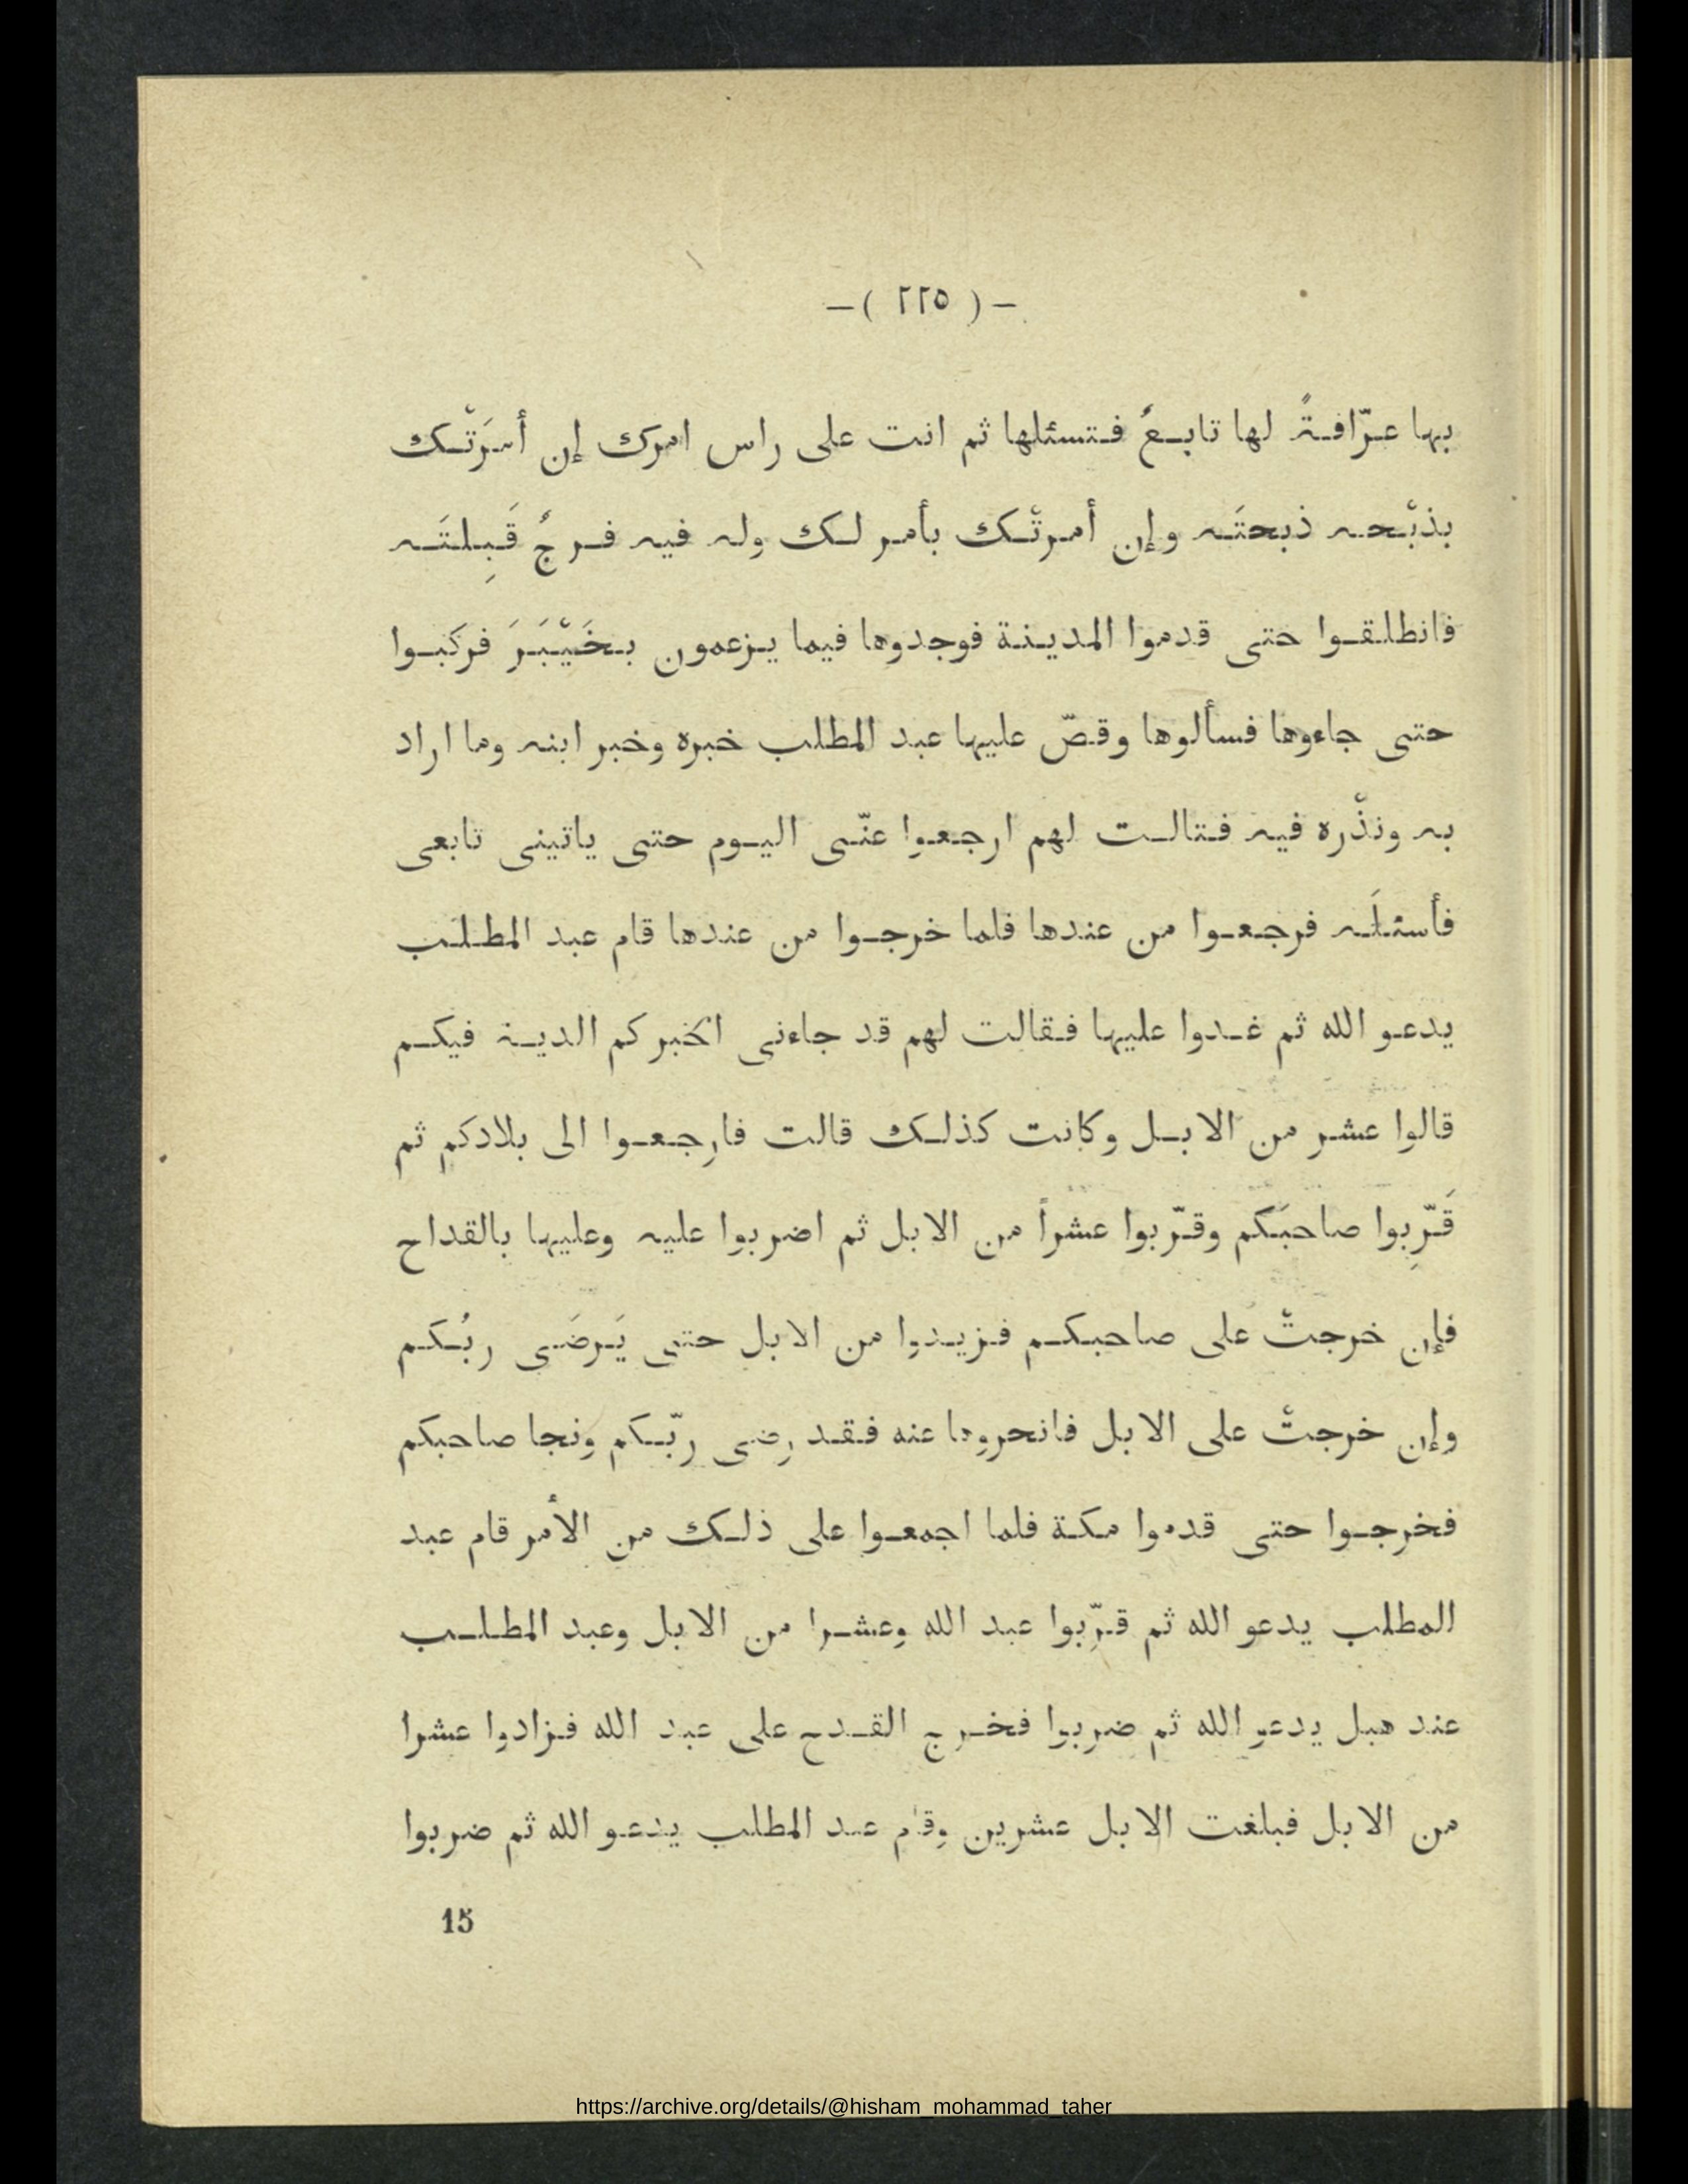 — ( ٢٢٥ ) —
بها عرّافةً لها تابعٌ فتسئلها ثم انت على راس امرك إن أمرَتْك
بذبْحه ذبحتَه وإن أمرتْك بأمر لك وله فيه فرجٌ قَبِلتَه
فانطلقوا حتى قدموا المدينة فوجدوها فيما يزعمون بخَيْبَرَ فركبوا
حتى جاءوها فسألوها وقصّ عليها عبد المطلب خبره وخبر ابنه وما اراد
به ونذْره فيه فتالت لهم ارجعوا عنّى اليوم حتى ياتينى تابعى
فأسئلَه فرجعوا من عندها فلما خرجوا من عندها قام عبد المطلب
يدعو الله ثم غدوا عليها فقالت لهم قد جاءنى الخبر كم الدية فيكم
قالوا عشر من الابل وكانت كذلك قالت فارجعوا الى بلادكم ثم
قَرِّبوا صاحبَكم وقرّبوا عشراً من الابل ثم اضربوا عليه وعليها بالقداح
فإن خرجتْ على صاحبكم فزيدوا من الابل حتى يَرضَى ربُكم
وإن خرجتْ على الابل فانحروها عنه فقد رضى ربّكم ونجا صاحبكم
فخرجوا حتى قدموا مكة فلما اجمعوا على ذلك من الأمر قام عبد
المطلب يدعو الله ثم قرّبوا عبد الله وعشرا من الابل وعبد المطلب
عند هبل يدعو الله ثم ضربوا فخرج القدح على عبد الله فزادوا عشرا
من الابل فبلغت الابل عشرين وقام عبد المطلب يدعو الله ثم ضربوا
15
https://archive.org/details/@hisham_mohammad_taher